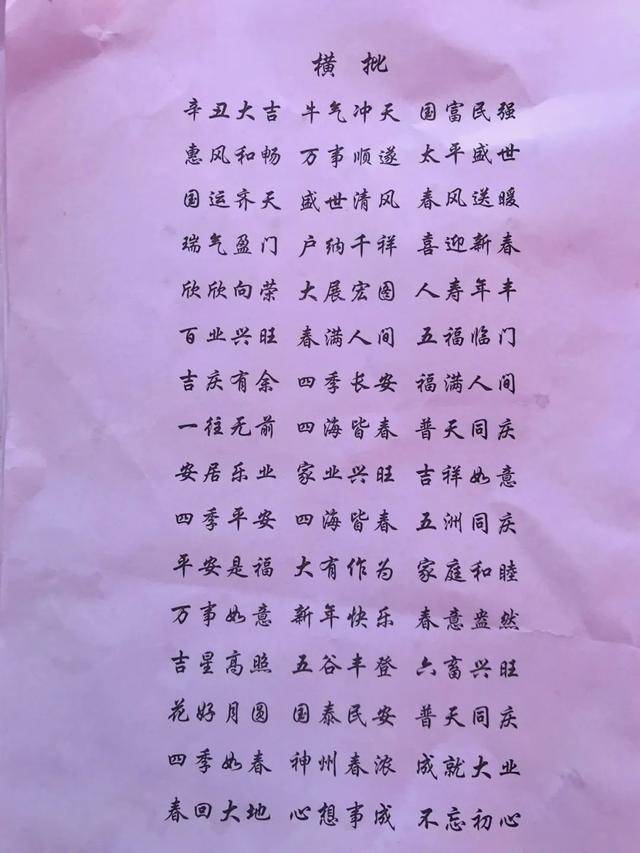 横批
辛丑大吉 牛气冲天 国富民强
惠风和畅 万事顺遂 太平盛世
国运齐天 盛世清风 春风送暖
瑞气盈门 户纳千祥 喜迎新春
欣欣向荣 大展宏图 人寿年丰
百业兴旺 春满人间 五福临门
吉庆有余 四季长安 福满人间
一往无前 四海皆春 普天同庆
安居乐业 家业兴旺 吉祥如意
四季平安 四海皆春 五洲同庆
平安是福 大有作为 家庭和睦
万事如意 新年快乐 春意盎然
吉星高照 五谷丰登 六畜兴旺
花好月圆 国泰民安 普天同庆
四季如春 神州春浓 成就大业
春回大地 心想事成 不忘初心